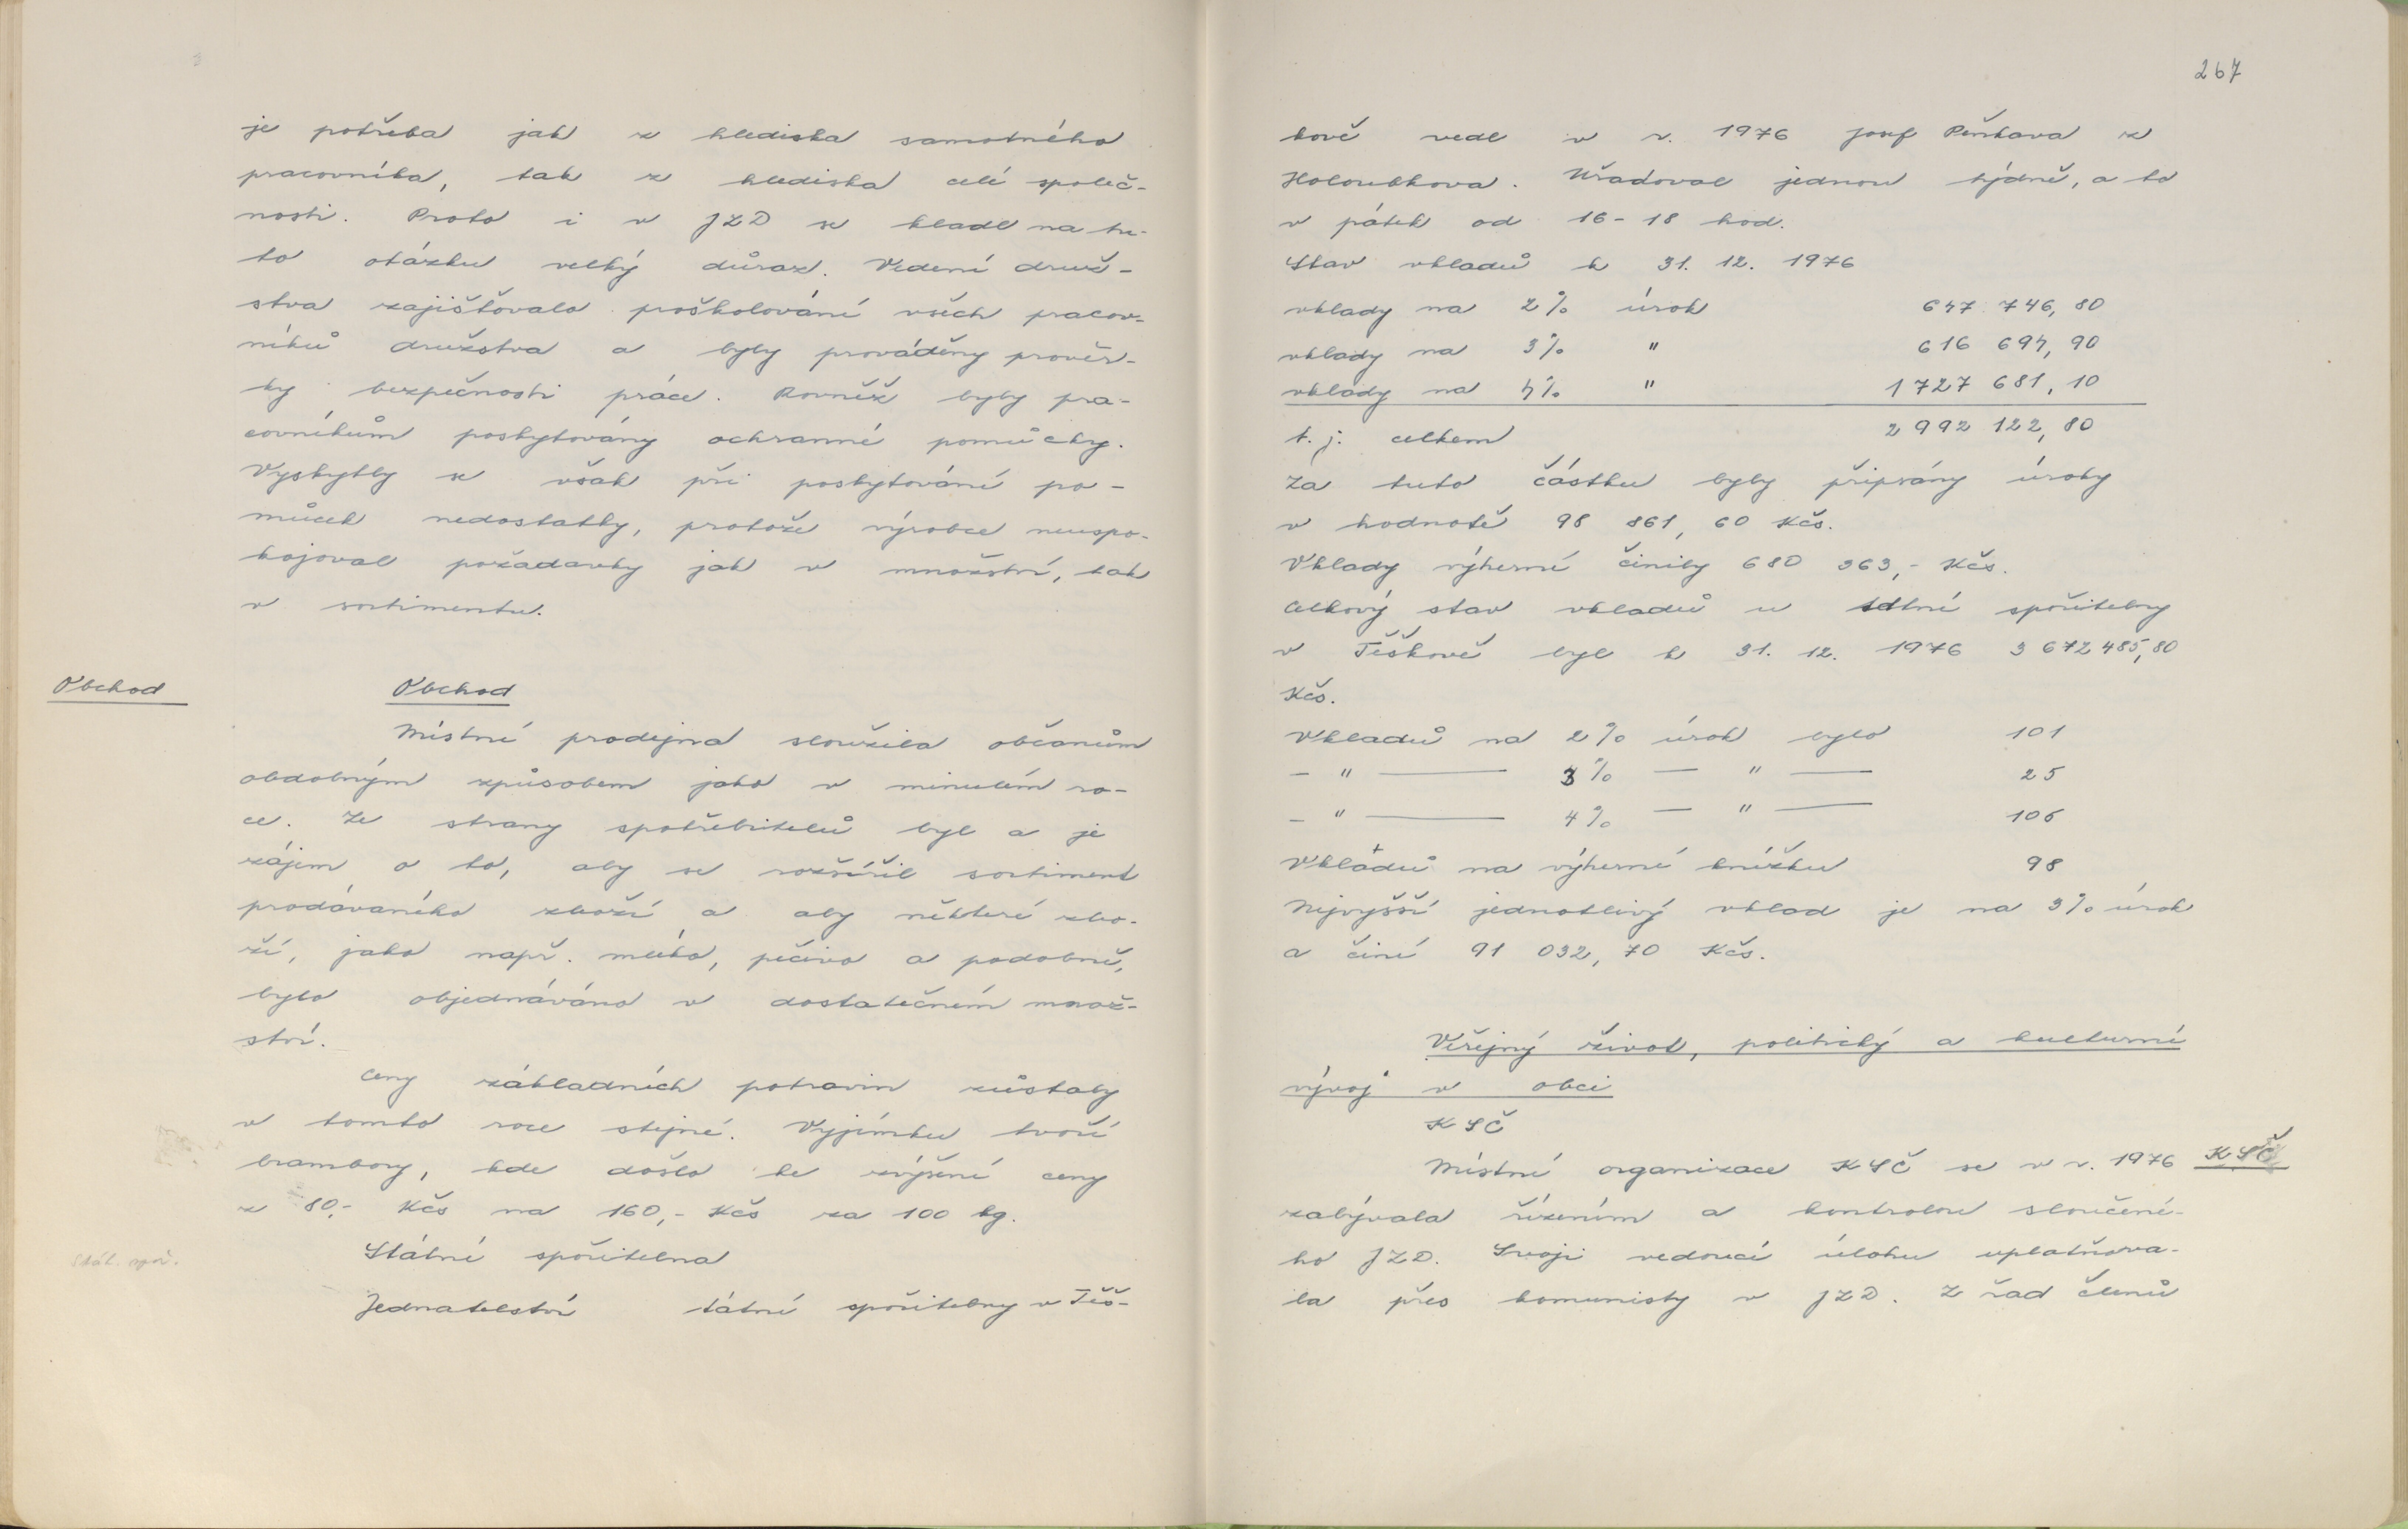 je potřeba jak z hlediska samotného
pracovníka, tak z hlediska celé společ-
nosti. Proto i v JZD se kladl na tu-
to otázku velký důraz. Vedení druž-
stva zajišťovalo proškolování všech pracov-
níků družstva a byly prováděny prověr-
ky bezpečnosti práce. Rovněž byly pra-
covníkům poskytovány ochranné pomůcky.
Vyskytly se však při poskytování po-
můcek nedostatky, protože výrobce neuspo-
kojoval požadavky jak v množství, tak
v sortimentu.
Obchod
Obchod
Místní prodejna sloužila občanům
obdobným způsobem jako v minulém ro-
ce. Ze strany spotřebitelů byl a je
zájem o to, aby se rozšířil sortiment
prodávaného zboží a aby některé zbo-
ží, jako např. mléko, pečivo a podobně,
bylo objednáváno v dostatečném množ-
ství.
Ceny základních potravin zůstaly
v tomto roce stejné. Vyjímku tvoří
brambory, kde došlo ke zvýšení ceny
z 80,- Kčs na 160,- Kčs za 100 kg.
Státní spořitelna
Stát. spoř.
Jednatelství tátní spořitelny v Těš-
267
kově vedl v r. 1976 Josef Peňkava z
Holoubkova. Úřadoval jednou týdně, a to
v pátek od 16-18 hod.
Stav vkladů k 31. 12. 1976
vklady na 2% úrok 647 746, 80
vklady na 3% " 616 694, 90
vklady na 4% " 1 727 681, 10
t. j. celkem 2 992 122, 80
Za tuto částku byly připsány úroky
v hodnotě 98 861, 60 Kčs.
Vklady výherní činily 680 363,- Kčs.
Celkový stav vkladů u státní spořitelny
v Těškově byl k 31. 12. 1976 3 672 485,80
Kčs.
Vkladů na 2% úrok bylo 101
- " — 3% — " — 25
- " — 4% — " — 106
Vkladů na výherní knížku 98
Nejvyšší jednotlivý vklad je na 3% úrok
a činí 91 032, 70 Kčs.
Veřejný život, politický a kulturní
vývoj v obci
KSČ
Místní organizace KSČ se v r. 1976
KSČ
zabývala řízením a kontrolou sloučené-
ho JZD. Svoji vedoucí úlohu uplatňova-
la přes komunisty v JZD. Z řad členů